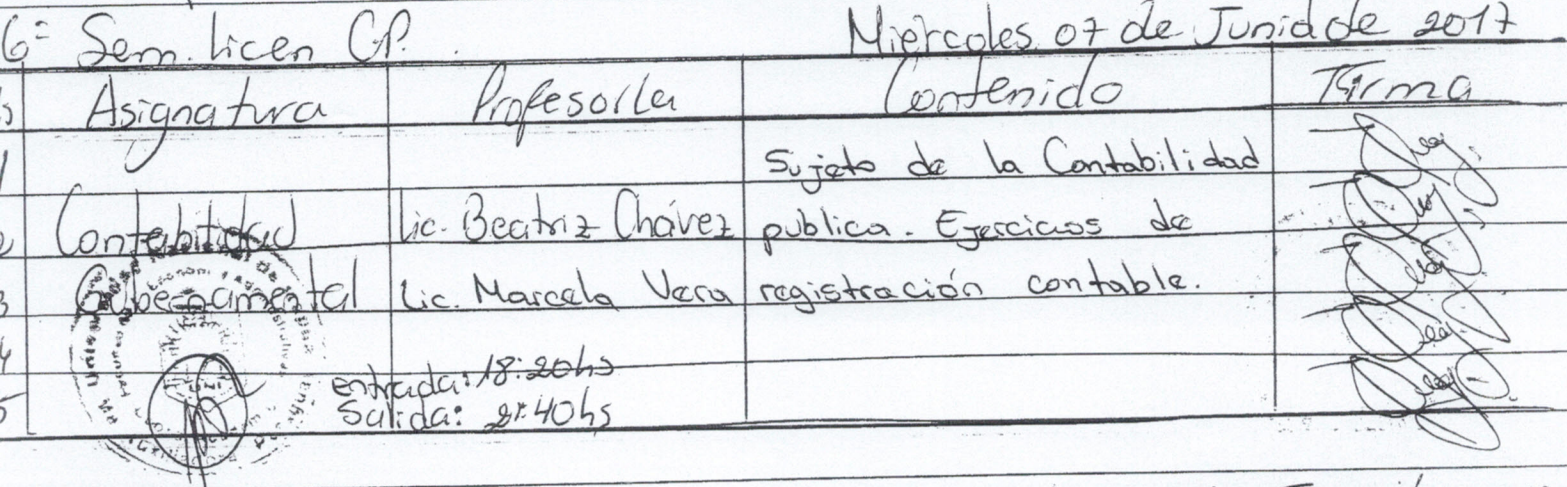 6º Sem. Licen CP. Miércoles 07 de Junio de 2017
Asignatura Profesor/a Contenido Firma
1 Sujeto de la Contabilidad
2 Contabilidad Lic. Beatriz Chávez publica. Ejercicios de
3 Gubernamental Lic. Marcela Vera registración contable.
4 entrada: 18:20hs
5 Salida: 21:40hs